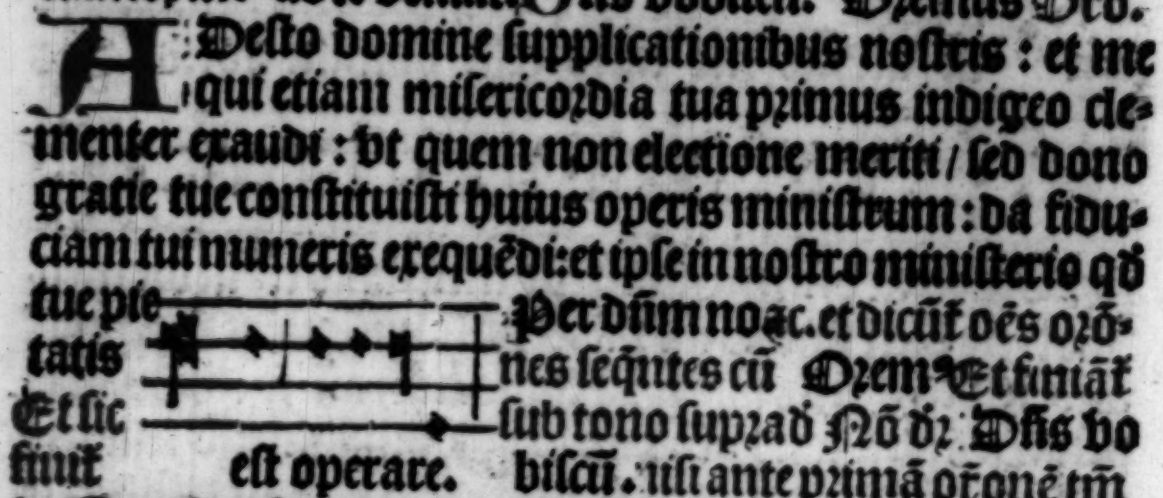 Oremus Oro.
ADesto domine supplicationibus nostris : et me
qui etiam misericordia tua primus indigeo cle⸗
menter exaudi : vt quem non electione meriti / sed dono
gratie tue constituisti huius operis ministrum : da fidu⸗
ciam tui muneris exequēdi: et ipse in nostro ministerio qđ
tue pie
tatis
Et sic
finiť
est operare.
Per dñm no ⁊c. et dicūť oēs orō⸗
nes seq̄ntes cū Oremꝰ Et finiāť
sub tono suprad Nō dr Dñs vo
biscū. nisi ante primā or̄onē tm̄